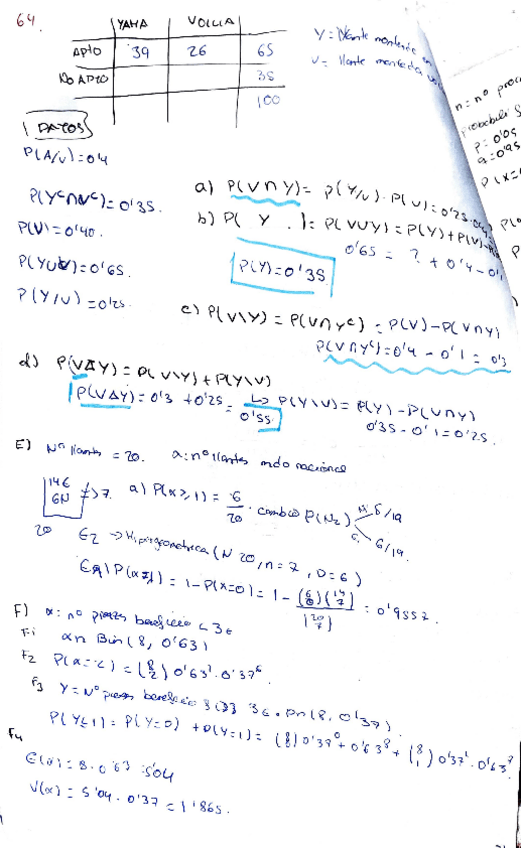 64.
YAMA VOLLIA
APTO 39 26 65
NO APTO 35
100
Y = llante montende
V = llante montedas
DATOS
P(A/V)=0'4
P(Y^c∩V^c)=0'35.
P(V)=0'40.
P(YUV)=0'65.
P(Y/V)=0'25.
a) P(V∩Y)= P(Y/V)·P(V)=0'25·0'4
b) P( Y . )= P(VUY)=P(Y)+P(V)-
0'65 = ? + 0'4-0'1
P(Y)=0'35
c) P(V\Y) = P(V∩Y^c) = P(V)-P(V∩Y)
P(V∩Y^c)=0'4 - 0'1 = 0'3
d) P(V∆Y)=P(V\Y)+P(Y\V)
P(V∆Y)=0'3 +0'25= 0'55
↳ P(Y\V)= P(Y)-P(V∩Y)
0'35-0'1=0'25.
n: nº
P: 0'05
q: 0'95
P(X=
E) Nº llantas = 20. x: nº llantas
14E
6N
=> 7. a) P(x≥1) = 6/20 · cambio P(N2) 6/19
20
6/19.
E2 → Hipergeometrica (N 20, n=7, D=6)
P(x≥1) = 1-P(x=0) = 1 - (6 0)(14 7)/(20 7) = 0'9557.
F) x: nº piezas beneficio < 3€
F1 x∩ Bin(8, 0'63)
F2 P(x=2) = (8 2) 0'63² · 0'37⁶
F3 Y = Nº piezas beneficio 3€. Bn(8, 0'37).
P(Y≤1) = P(Y=0) + P(Y=1) = (8 0) 0'37⁰ · 0'63⁸ + (8 1) 0'37¹ · 0'63⁷
F4
E(x) = 8·0'63 = 5'04
V(x) = 5'04 · 0'37 = 1'865.